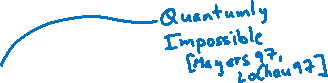 Quantumly
Impossible
[Mayers 97,
LoChau 97]